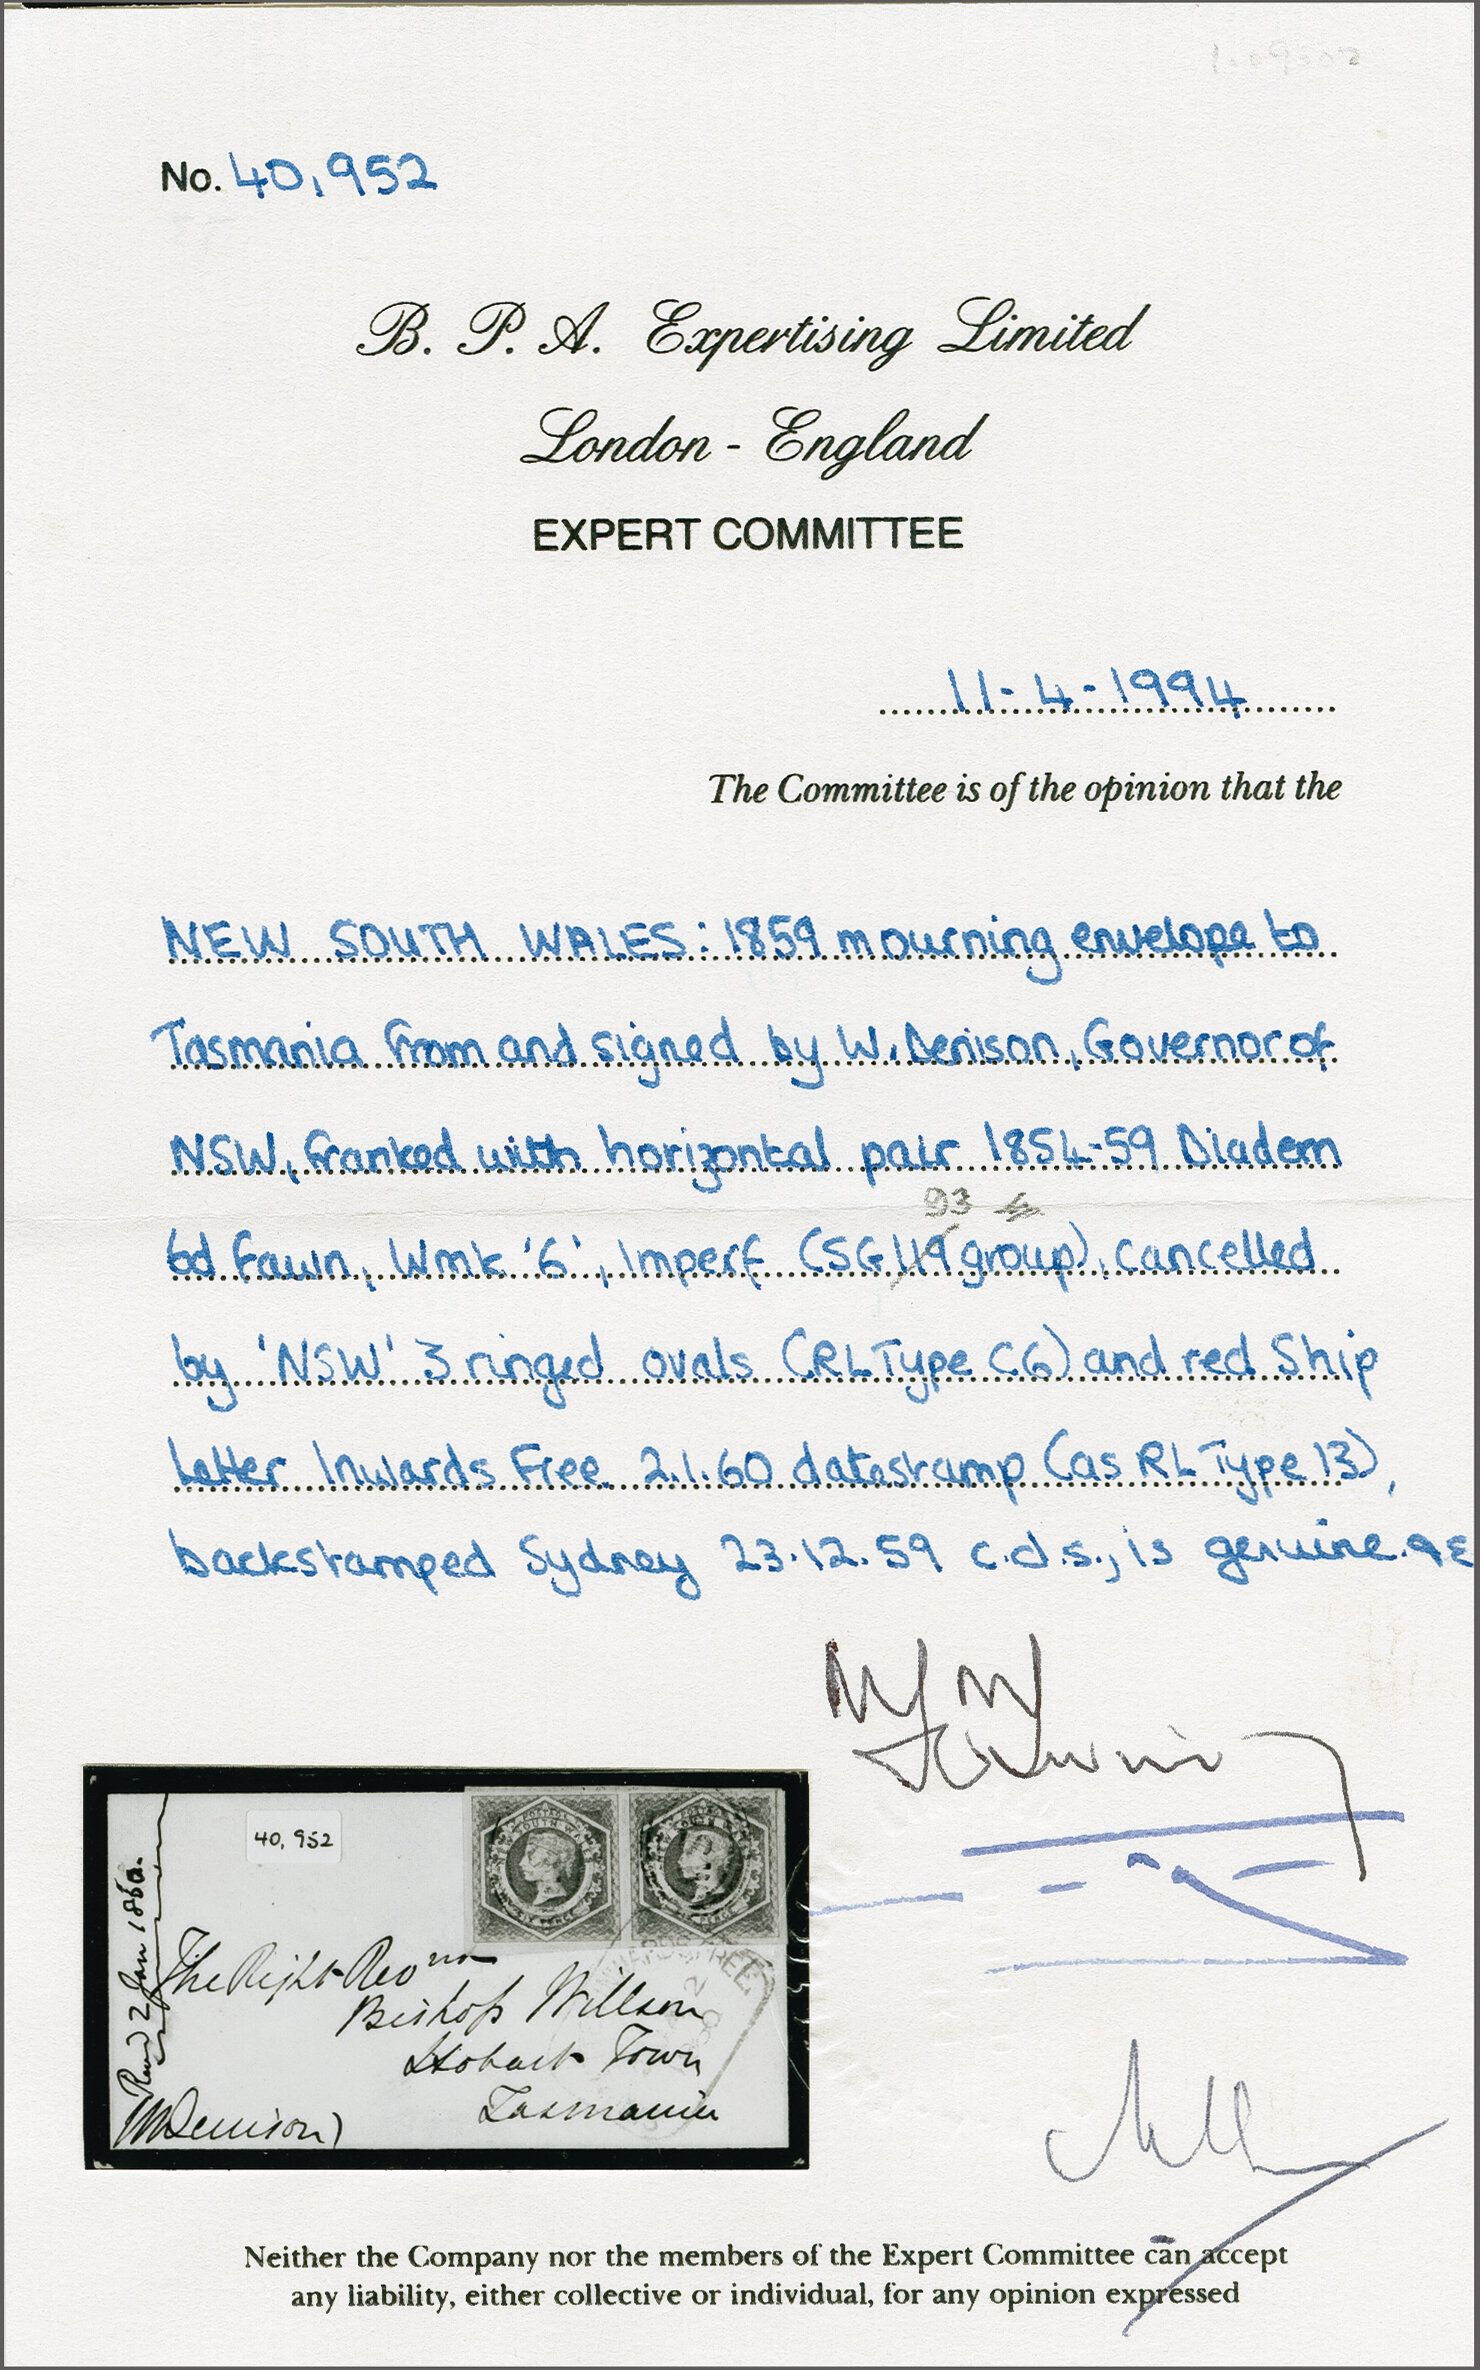 No. 40,952
B. P. A. Expertising Limited
London - England
EXPERT COMMITTEE
11-4-1994
The Committee is of the opinion that the
NEW SOUTH WALES: 1859 mourning envelope to
Tasmania from and signed by W. Denison, Governor of
NSW, franked with horizontal pair 1854-59 Diadem
93
6d fawn, Wmk '6', imperf (SG119 group), cancelled
by 'NSW' 3 ringed ovals (RL Type C6) and red Ship
Letter Inwards Free 2.1.60 datestamp (as RL Type 13),
backstamped Sydney 23.12.59 c.d.s., is genuine.
40,952
POSTAGE
SOUTH WA
SIX PENCE
Recd 2 Jan 1860.
The Right Revnd
Bishop Willson
Hobart Town
Tasmania
WDenison
INWARDS FREE
Neither the Company nor the members of the Expert Committee can accept
any liability, either collective or individual, for any opinion expressed